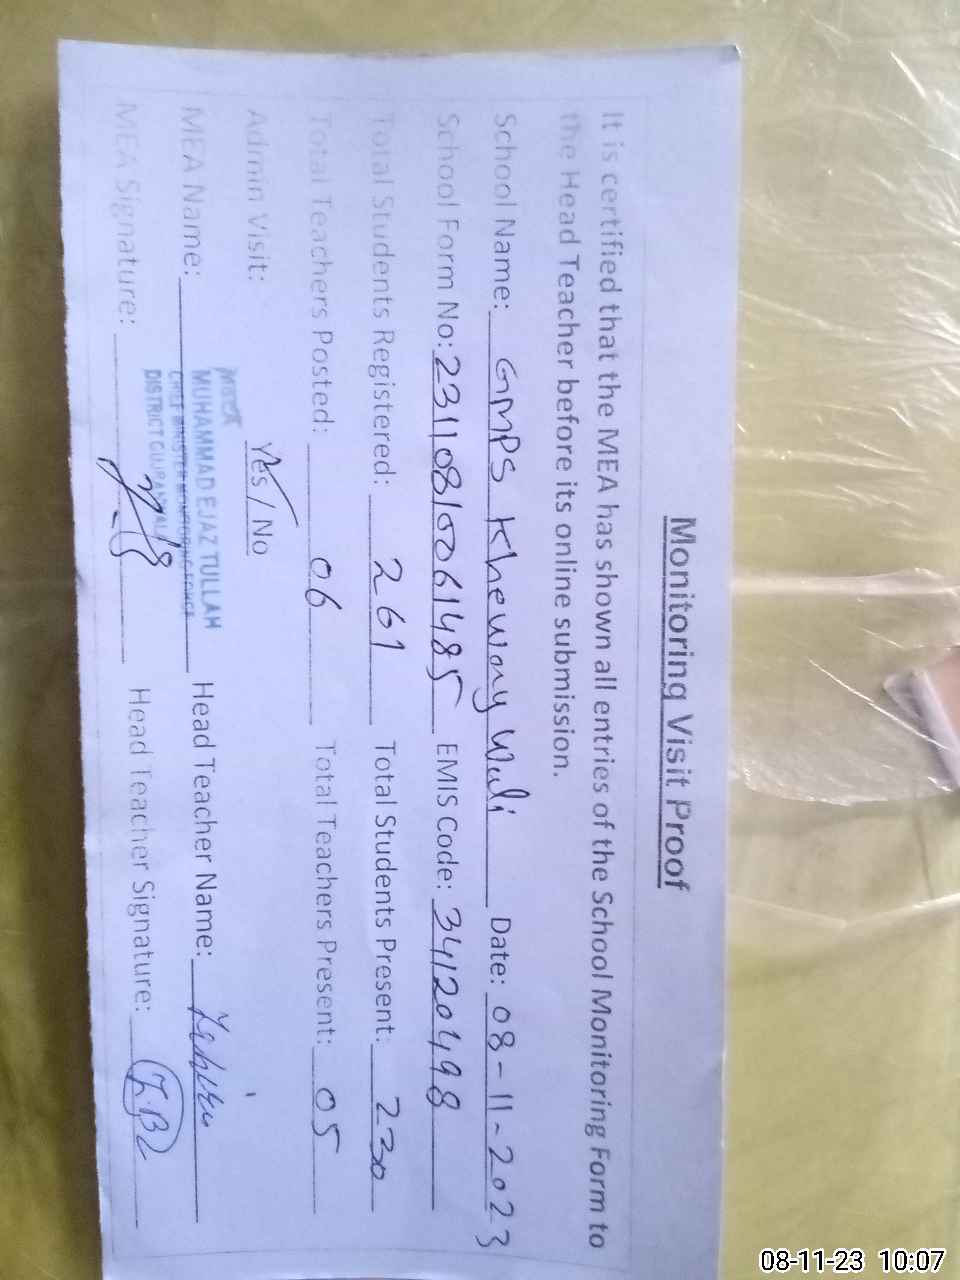 Monitoring Visit Proof
It is certified that the MEA has shown all entries of the School Monitoring Form to
the Head Teacher before its online submission.
School Name: GMPS Khewany Wali Date: 08-11-2023
School Form No: 23110810061485 EMIS Code: 34120498
Total Students Registered: 261 Total Students Present: 230
Total Teachers Posted: 06 Total Teachers Present: 05
Admin Visit: Yes / No
MUHAMMAD EJAZ TULLAH
MEA Name: Head Teacher Name:
CHIEF MINISTER MONITORING FORCE
DISTRICT GUJRANWALA
MEA Signature: Head Teacher Signature:
08-11-23 10:07